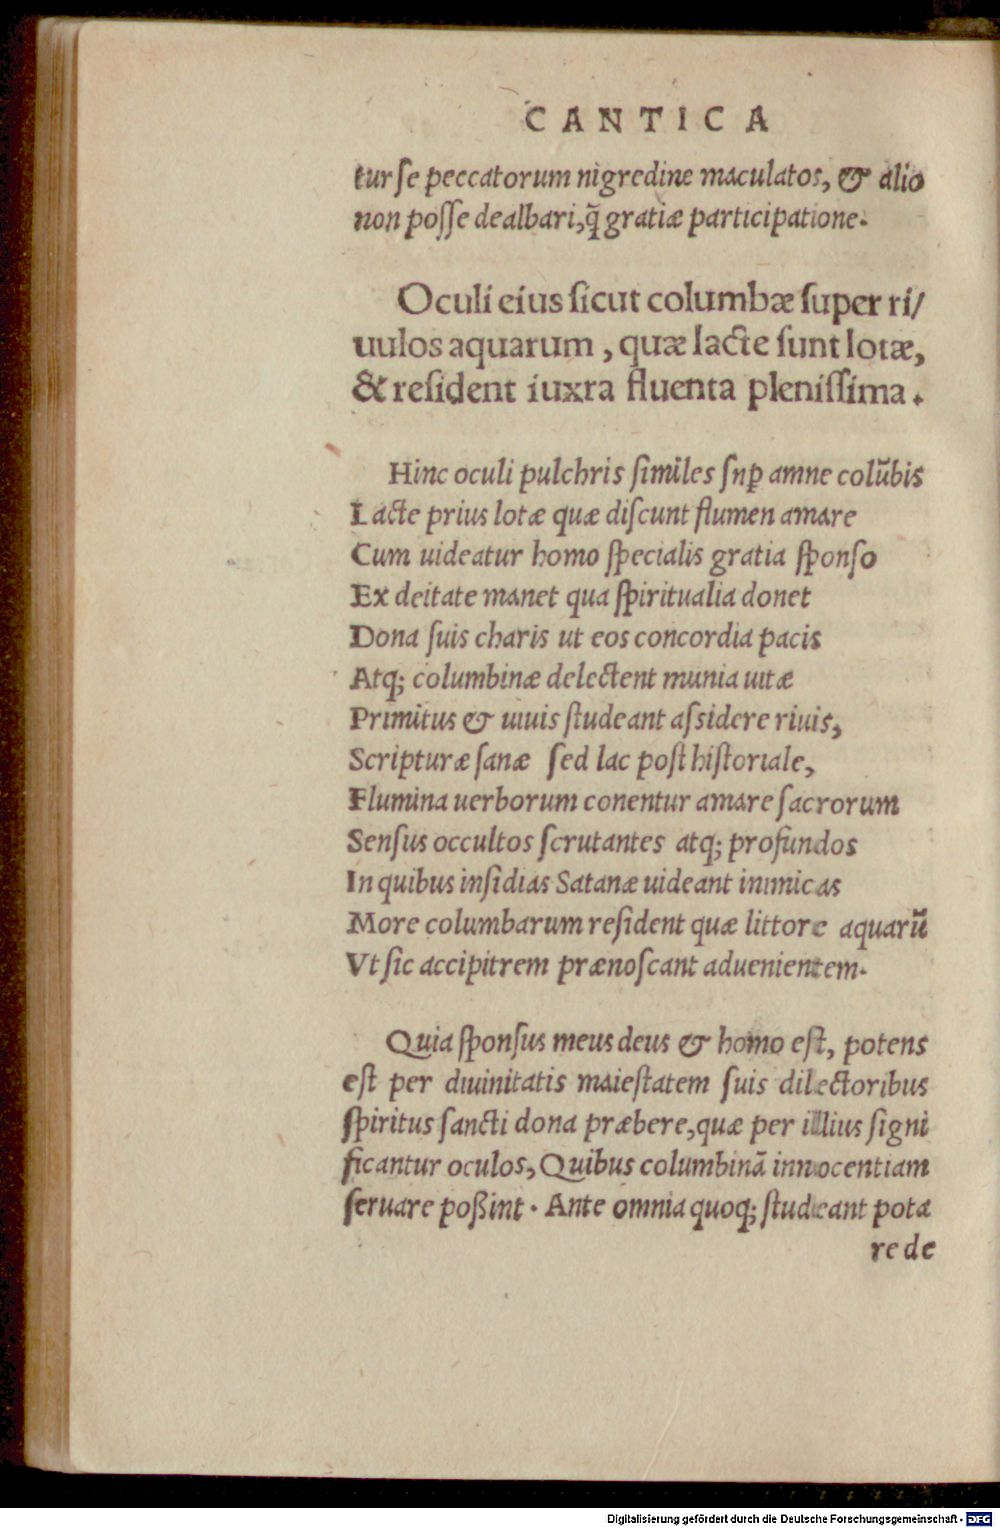 CANTICA
tur ſe peccatorum nigredine maculatos, & alio
non poſſe dealbari, q̃ gratiæ participatione.
Oculi eius ſicut columbæ ſuper ri/
uulos aquarum, quæ lacte ſunt lotæ,
& reſident iuxra fluenta pleniſſima.
Hinc oculi pulchris ſimiles ſnꝑ amne colũbis
Lacte prius lotæ quæ diſcunt flumen amare
Cum uideatur homo ſpecialis gratia ſponſo
Ex deitate manet qua ſpiritualia donet
Dona ſuis charis ut eos concordia pacis
Atq; columbinæ delectent munia uitæ
Primitus & uiuis ſtudeant aſsidere riuis,
Scripturæ ſanæ ſed lac poſt hiſtoriale,
Flumina uerborum conentur amare ſacrorum
Senſus occultos ſcrutantes atq; profundos
In quibus inſidias Satanæ uideant inimicas
More columbarum reſident quæ littore aquarũ
Vt ſic accipitrem prænoſcant aduenientem.
Quia ſponſus meus deus & homo eſt, potens
eſt per diuinitatis maieſtatem ſuis dilectoribus
ſpiritus ſancti dona præbere, quæ per illius ſigni
ficantur oculos, Quibus columbinã innocentiam
ſeruare poßint. Ante omnia quoq; ſtudeant pota
re de
Digitalisierung gefördert durch die Deutsche Forschungsgemeinschaft - DFG